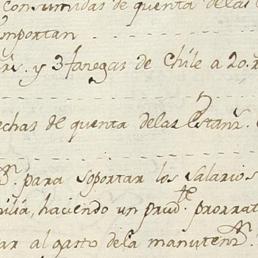 consumidas de quenta de las
importan
y 3 fanegas de Chile a 20 r.
echas de quenta delas Estanz.
para soportar los salarios
milia, haciendo un prud.te prorrat
ar al gasto dela manuten.n